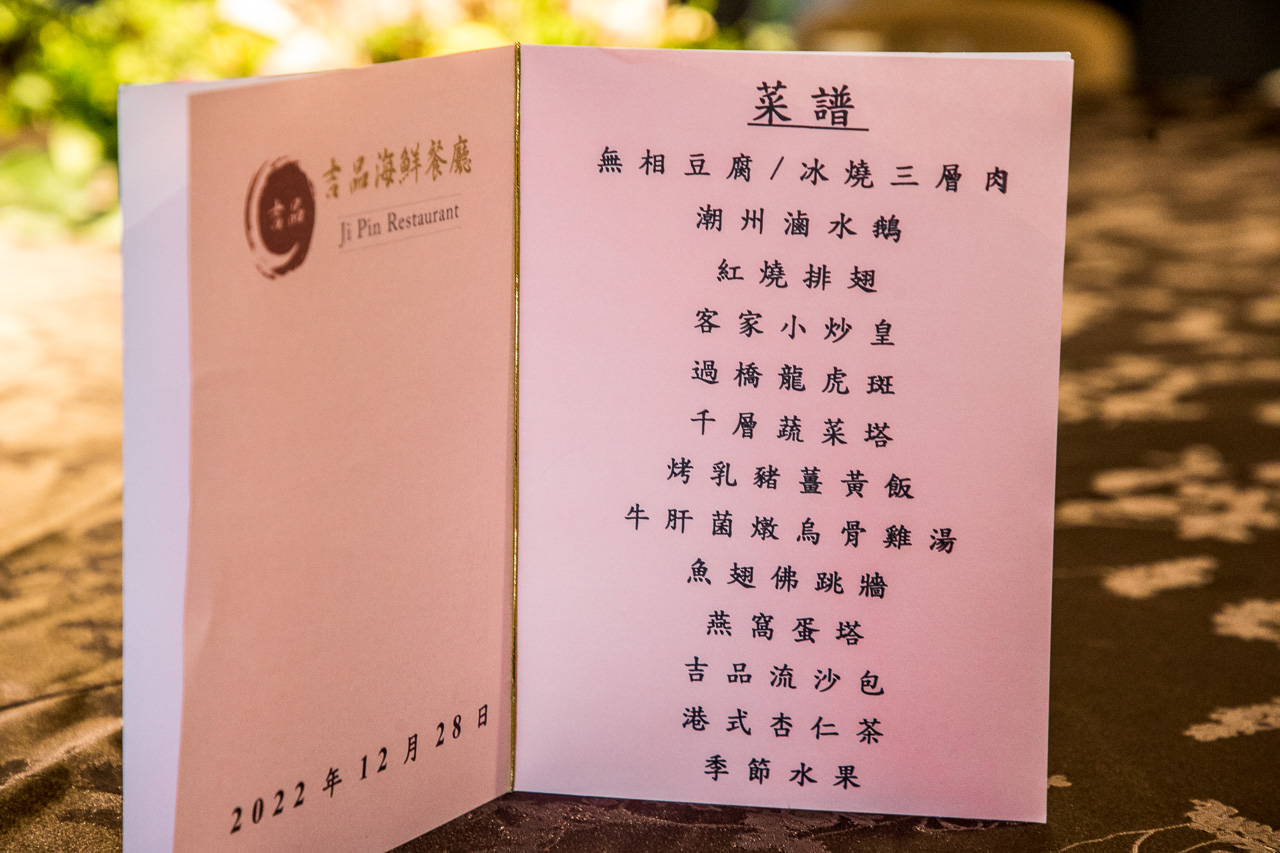 吉品
吉品海鮮餐廳
Ji Pin Restaurant
2022年12月28日
菜譜
無相豆腐/冰燒三層肉
潮州滷水鵝
紅燒排翅
客家小炒皇
過橋龍虎斑
千層蔬菜塔
烤乳豬薑黃飯
牛肝菌燉烏骨雞湯
魚翅佛跳牆
燕窩蛋塔
吉品流沙包
港式杏仁茶
季節水果